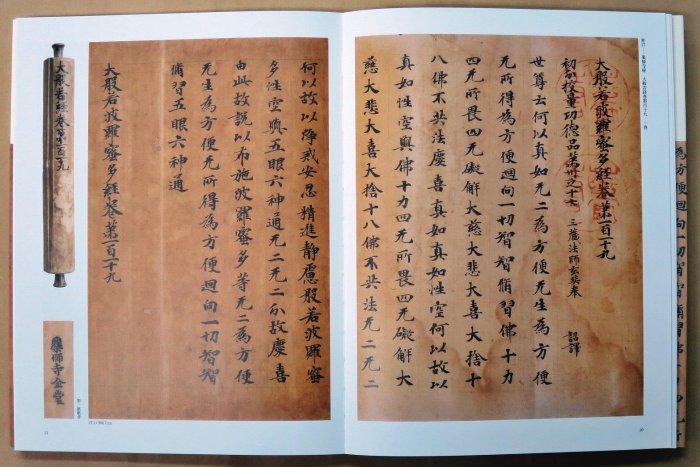 為方便迴向一切智智脩習
大般若波羅蜜多經卷第一百十九
初分挍量功德品第卅之十七 三藏法師玄奘奉 詔譯
世尊云何以真如无二為方便无生為方便
无所得為方便迴向一切智智脩習佛十力
四无所畏四无礙解大慈大悲大喜大捨十
八佛不共法慶喜真如真如性空何以故以
真如性空與佛十力四无所畏四无礙解大
慈大悲大喜大捨十八佛不共法无二无二
何以故以淨戒安忍精進靜慮般若波羅蜜
多性空與五眼六神通无二无二分故慶喜
由此故說以布施波羅蜜多等无二為方便
无生為方便无所得為方便迴向一切智智
脩習五眼六神通
大般若波羅蜜多經卷第一百十九
大般若經卷第一百十九
藥師寺金堂